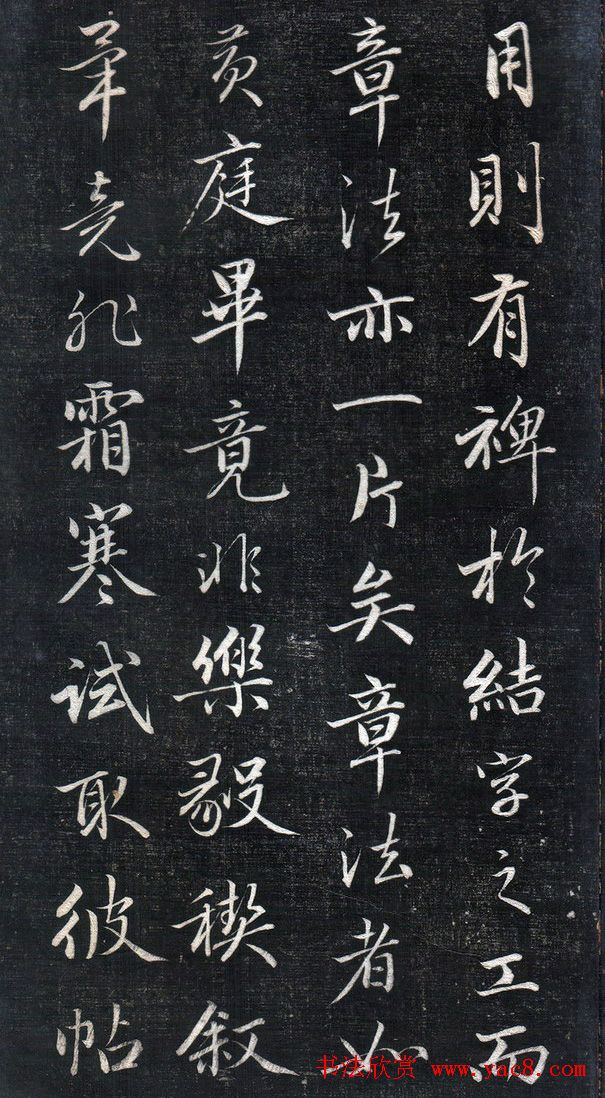 用則有裨於結字之工而
章法亦一片矣章法者如
黄庭畢竟非樂毅稧叙
畢竟非霜寒試取彼帖
书法欣赏 www.yac8.com